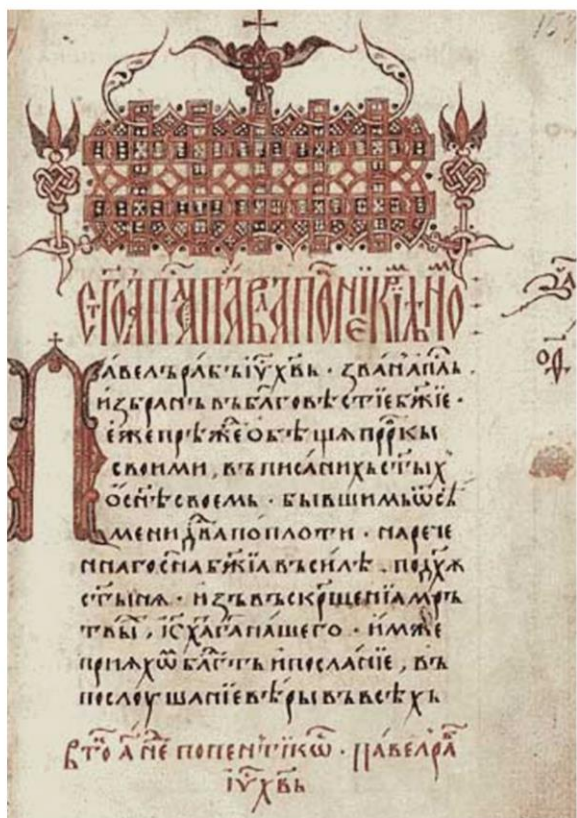 Павелъ рабъ іу҃ хв҃ь · званъ ап҃ль ·
избранъ въ бл҃говѣстїе бж҃їе ·
еже прѣже обѣщя прⷪ҇ркы
своими, въ писанихь ст҃ых
о сн҃ѣ своемь · бывшимь ѿ сѣ
мени дв҃да по плоти · нарече
ннаго сн҃а бж҃їа въ силѣ . по дх҃ѫ
ст҃ыня · изъ въскрⷭ҇щенїа мръ
твыⷯ, іс҃ х҃а г҃а нашего · имже
прияхѡⷨ бл҃гⷣть и посланїе, въ
послоушанїе вѣры въ всѣхь
павел раⷠ
іу҃ хв҃ь